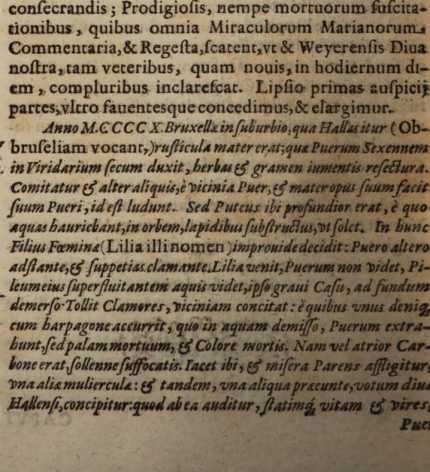 consecrandis; Prodigiosis, nempe mortuorum suscita-
tionibus, quibus omnia Miraculorum Marianorum
Commentaria, & Regesta, scatent, vt & Weyerensis Diua
nostra, tam veteribus, quam nouis, in hodiernum di-
em, compluribus inclarescat. Lipsio primas auspicij
partes, vltro fauentesque concedimus, & elargimur.
Anno M.CCCC X. Bruxellæ in suburbio, qua Hallas itur (Ob-
bruseliam vocant,) rusticula mater erat; quæ Puerum Sexennem
in Viridarium secum duxit, herbas & gramen iumentis resectura.
Comitatur & alter aliquis, è vicinia Puer, & mater opus suum facit
suum Pueri, id est ludunt. Sed Puteus ibi profundior erat, è quo
aquas hauriebant, in orbem, lapidibus substructus, vt solet. In hunc
Filius Fœminæ (Lilia illi nomen) improuide decidit: Puero altero
adstante, & suppetias clamante. Lilia venit, Puerum non videt, Pi-
leum eius superfluitantem aquis videt, ipso graui Casu, ad fundum
demerso. Tollit Clamores, viciniam concitat: è quibus vnus deniq,
cum harpagone accurrit, quo in aquam demisso, Puerum extra-
hunt, sed palam mortuum, & Colore mortis. Nam vel atrior Car-
bone erat, sollenne suffocatis. Iacet ibi, & misera Parens affligitur,
vna alia muliercula: & tandem, vna aliqua præeunte, votum diuæ
Hallensi, concipitur: quod ab ea auditur, statimq, vitam & vires,
Puer